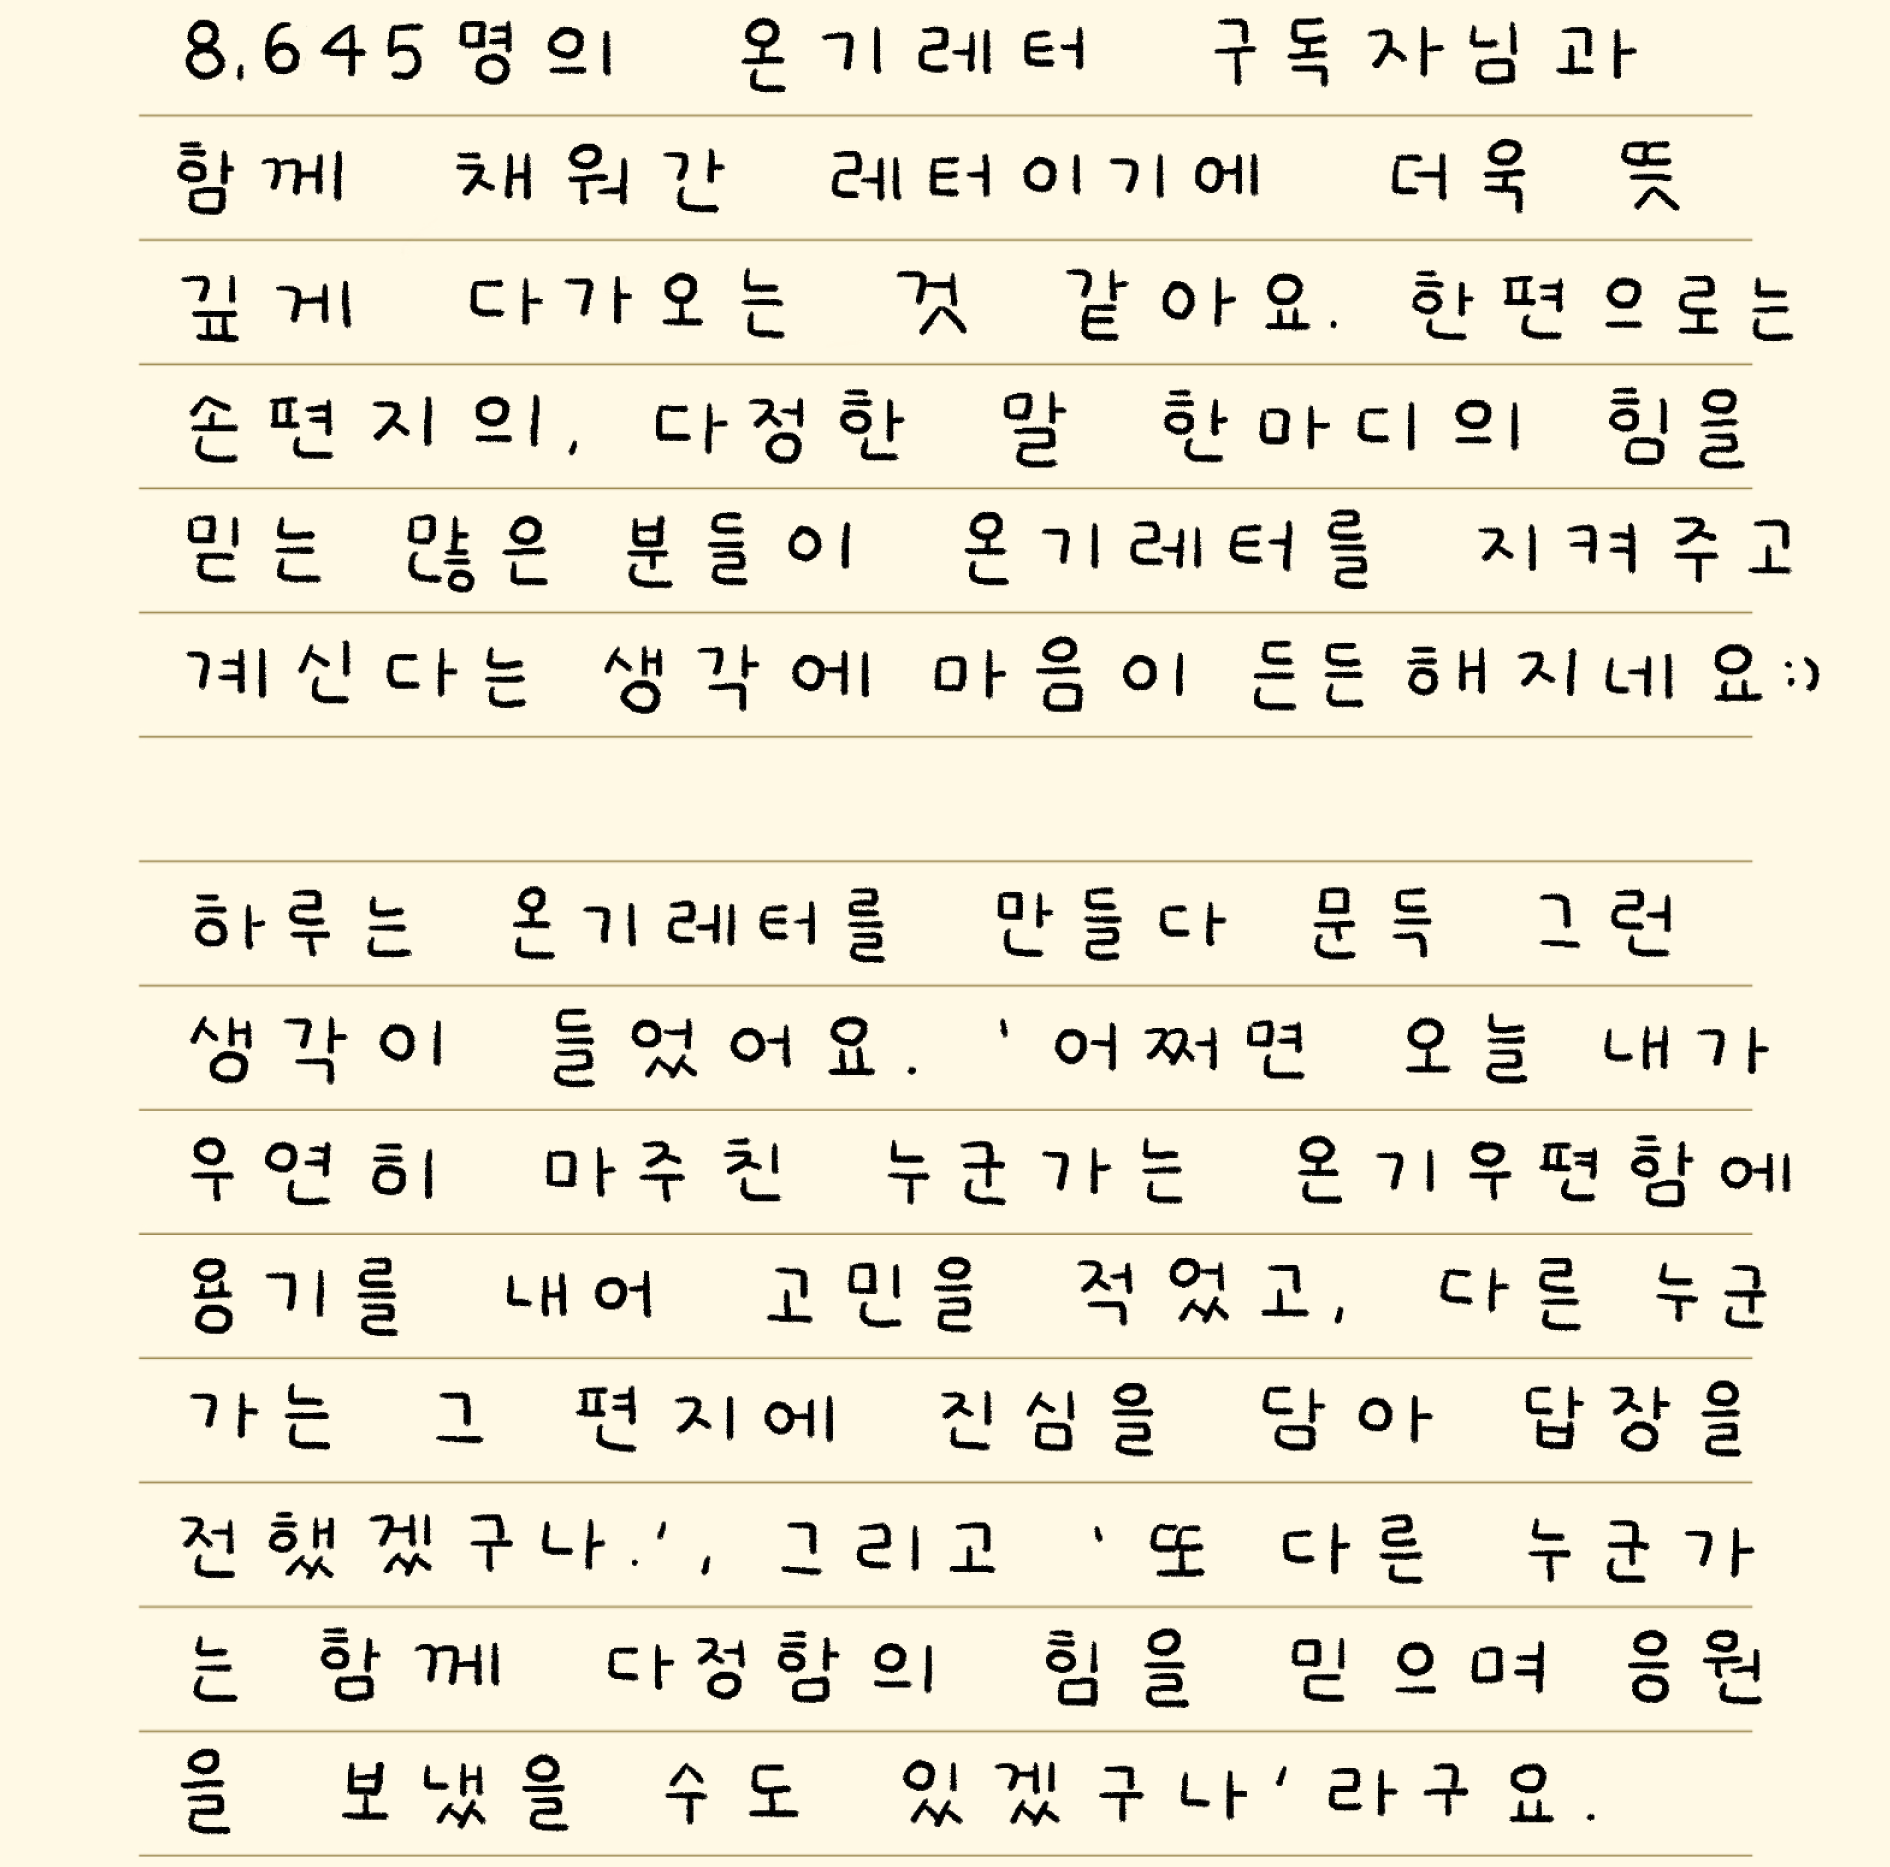 8,645명의 온기레터 구독자님과
함께 채워간 레터이기에 더욱 뜻
깊게 다가오는 것 같아요. 한편으로는
손편지의, 다정한 말 한마디의 힘을
믿는 많은 분들이 온기레터를 지켜주고
계신다는 생각에 마음이 든든해지네요:)
하루는 온기레터를 만들다 문득 그런
생각이 들었어요. '어쩌면 오늘 내가
우연히 마주친 누군가는 온기우편함에
용기를 내어 고민을 적었고, 다른 누군
가는 그 편지에 진심을 담아 답장을
전했겠구나.', 그리고 '또 다른 누군가
는 함께 다정함의 힘을 믿으며 응원
을 보냈을 수도 있겠구나'라구요.